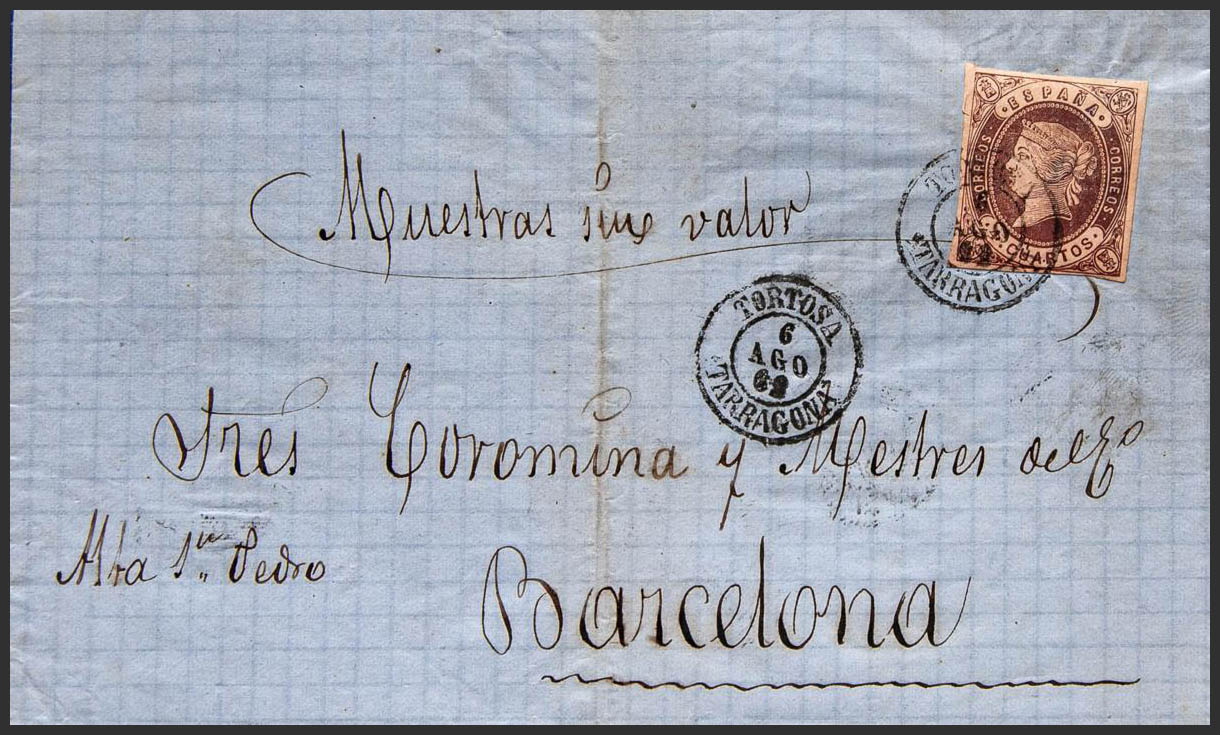 · ESPAÑA ·
CORREOS
CORREOS
CUARTOS
AGO
TARRAGONA
Muestras sin valor
TORTOSA
6
AGO
62
TARRAGONA
Sres Coromina y Mestres del C.º
Alta Sn. Pedro
Barcelona